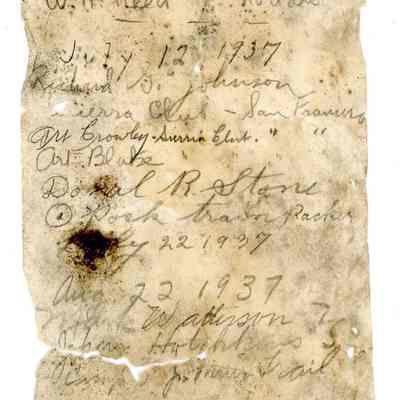 W. H. Reed
July 12 1937
Richard G. Johnson
Sierra Club - San Francisco
Art Crowley - Sierra Club. " "
Art Blake
Donal R Stone
Rock train Packer
July 22 1937
Aug 22 1937
Watterson
Hotchkiss
Trail